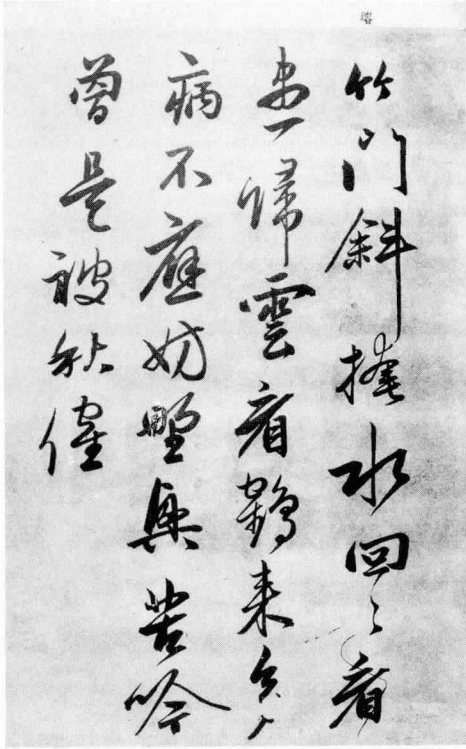 竹門斜掩水回〻看
盡歸雲看鶴来多
病不應妨野興苦吟
曾是被秋催